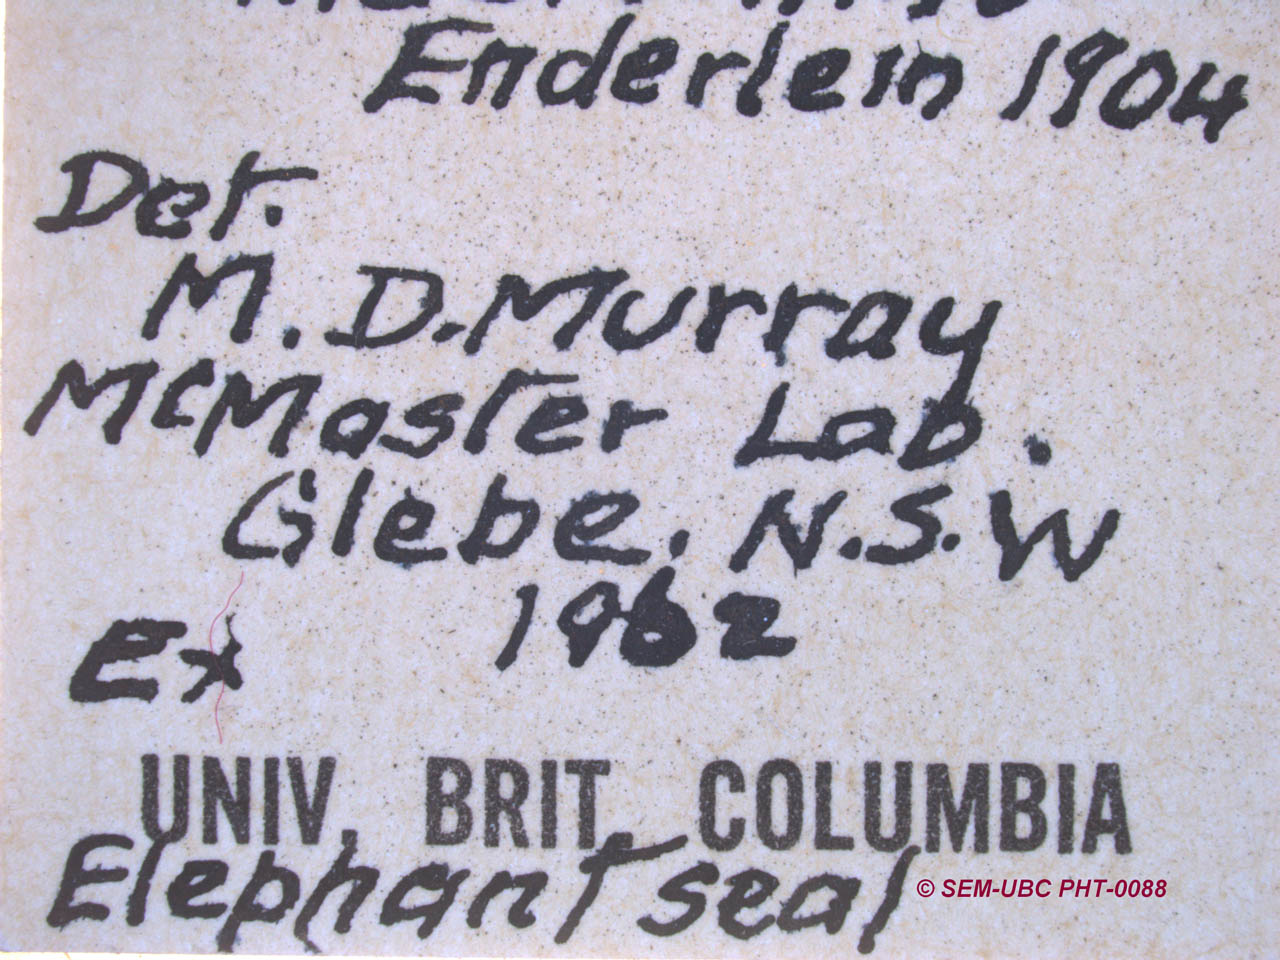 Enderlein 1904
Det.
M. D. Murray
McMaster Lab.
Glebe, N.S.W
1962
Ex
UNIV. BRIT. COLUMBIA
Elephant seal
© SEM-UBC PHT-0088